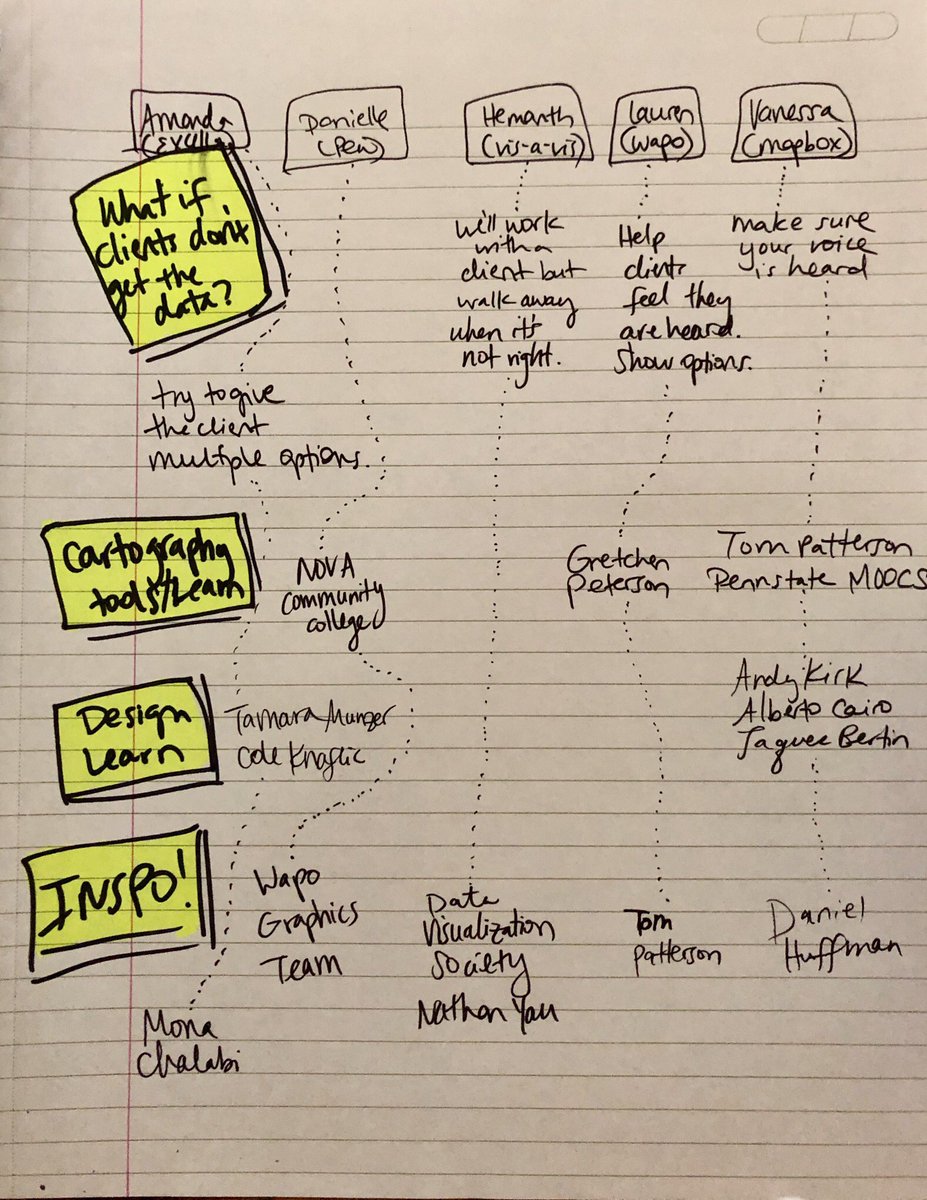 Amanda
Danielle
(Pew)
Hemanth
(vis-a-vis)
Lauren
(wapo)
Vanessa
(mapbox)
What if
clients don't
get the
data?
we'll work
with a
client but
walk away
when it's
not right.
Help
clients
feel they
are heard.
Show options.
make sure
your voice
is heard
try to give
the client
multiple options.
Cartography
tools/Learn
NOVA
community
college
Gretchen
Peterson
Tom Patterson
Pennstate MOOCS
Design
Learn
Tamara Munzer
Cole Knaflic
Andy Kirk
Alberto Cairo
Jaques Bertin
INSPO!
Wapo
Graphics
Team
Data
Visualization
Society
Nathan Yau
Tom
Patterson
Daniel
Huffman
Mona
Chalabi